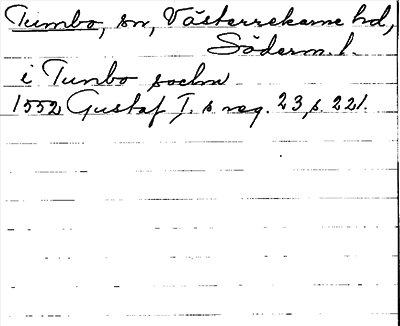 Tumbo, sn, Västerrekarne hd,
Söderm. l.
i Tumbo socken
1552 Gustaf I. s reg. 23, s. 221.